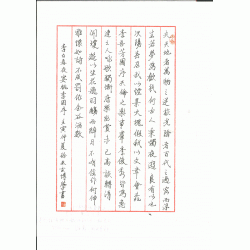 夫天地者萬物之逆旅光陰者百代之過客而浮
生若夢為歡幾何古人秉燭夜遊良有以也
況陽春召我以煙景大塊假我以文章會桃
李芳園序天倫之樂事群季俊秀皆為惠
連吾人詠歌獨慚康樂幽賞未已高談轉清
開瓊筵以坐花飛羽觴而醉月不有佳作何伸
雅懷如詩不成罰依金谷酒數
李白春夜宴桃李園序壬寅仲夏書